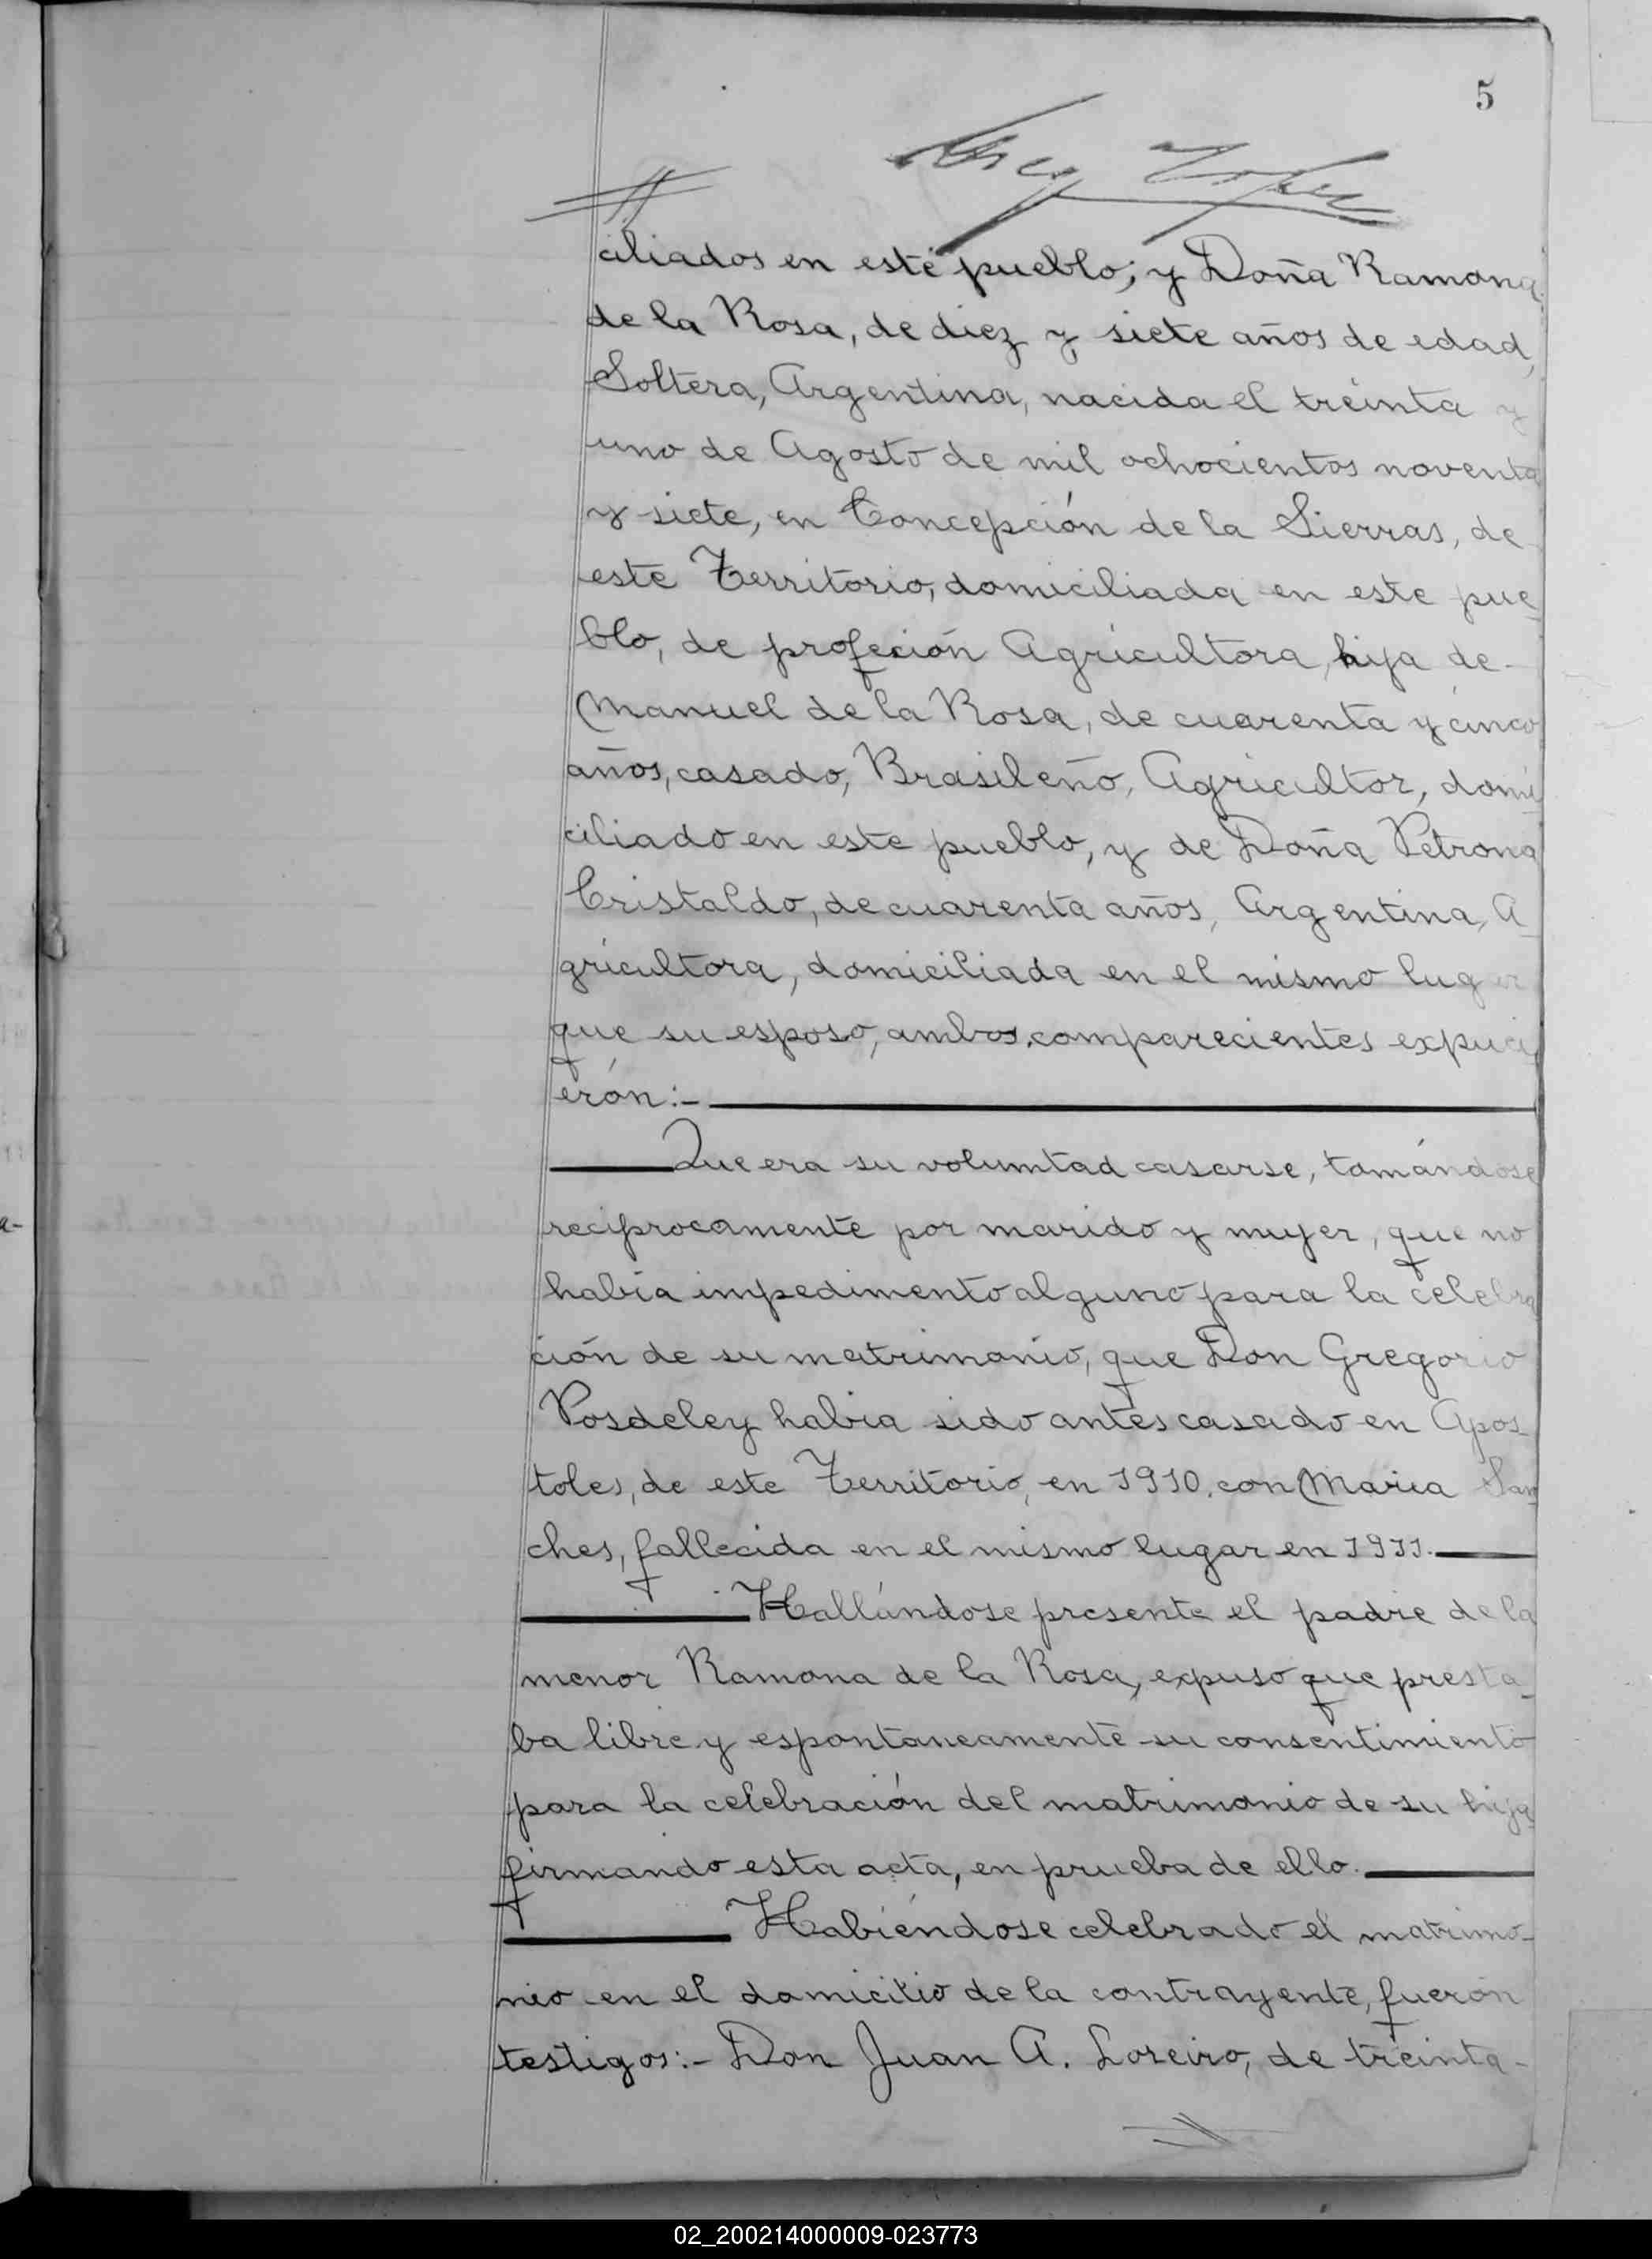 5
ciliados en este pueblo; y Doña Ramona
de la Rosa, de diez y siete años de edad,
Soltera, Argentina, nacida el treinta y
uno de Agosto de mil ochocientos noventa
y siete, en Concepción de la Sierras, de
este Territorio, domiciliada en este pue
blo, de profeción Agricultora, hija de-
Manuel de la Rosa, de cuarenta y cinco
años, casado, Brasileño, Agricultor, domi
ciliado en este pueblo, y de Doña Petrona
Cristaldo, de cuarenta años, Argentina, A
gricultora, domiciliada en el mismo lugar
que su esposo, ambos comparecientes expuci
erón:-
Que era su volumtad casarse, tomándose
reciprocamente por marido y mujer, que no
habia impedimento alguno para la celebra
ción de su matrimonio, que Don Gregorio
Posdeley habia sido antes casado en Apos-
toles, de este Territorio, en 1910. con Maria San
ches, fallecida en el mismo lugar en 1911.
Hallándose presente el padre de la
menor Ramona de la Rosa, expuso que presta-
ba libre y espontaneamente su consentimiento
para la celebración del matrimonio de su hija
firmando esta acta, en prueba de ello.
Habiéndose celebrado el matrimo-
nio en el domicilio de la contrayente, fueron
testigos:- Don Juan A. Loreiro, de treinta-
a-
02_200214000009-023773